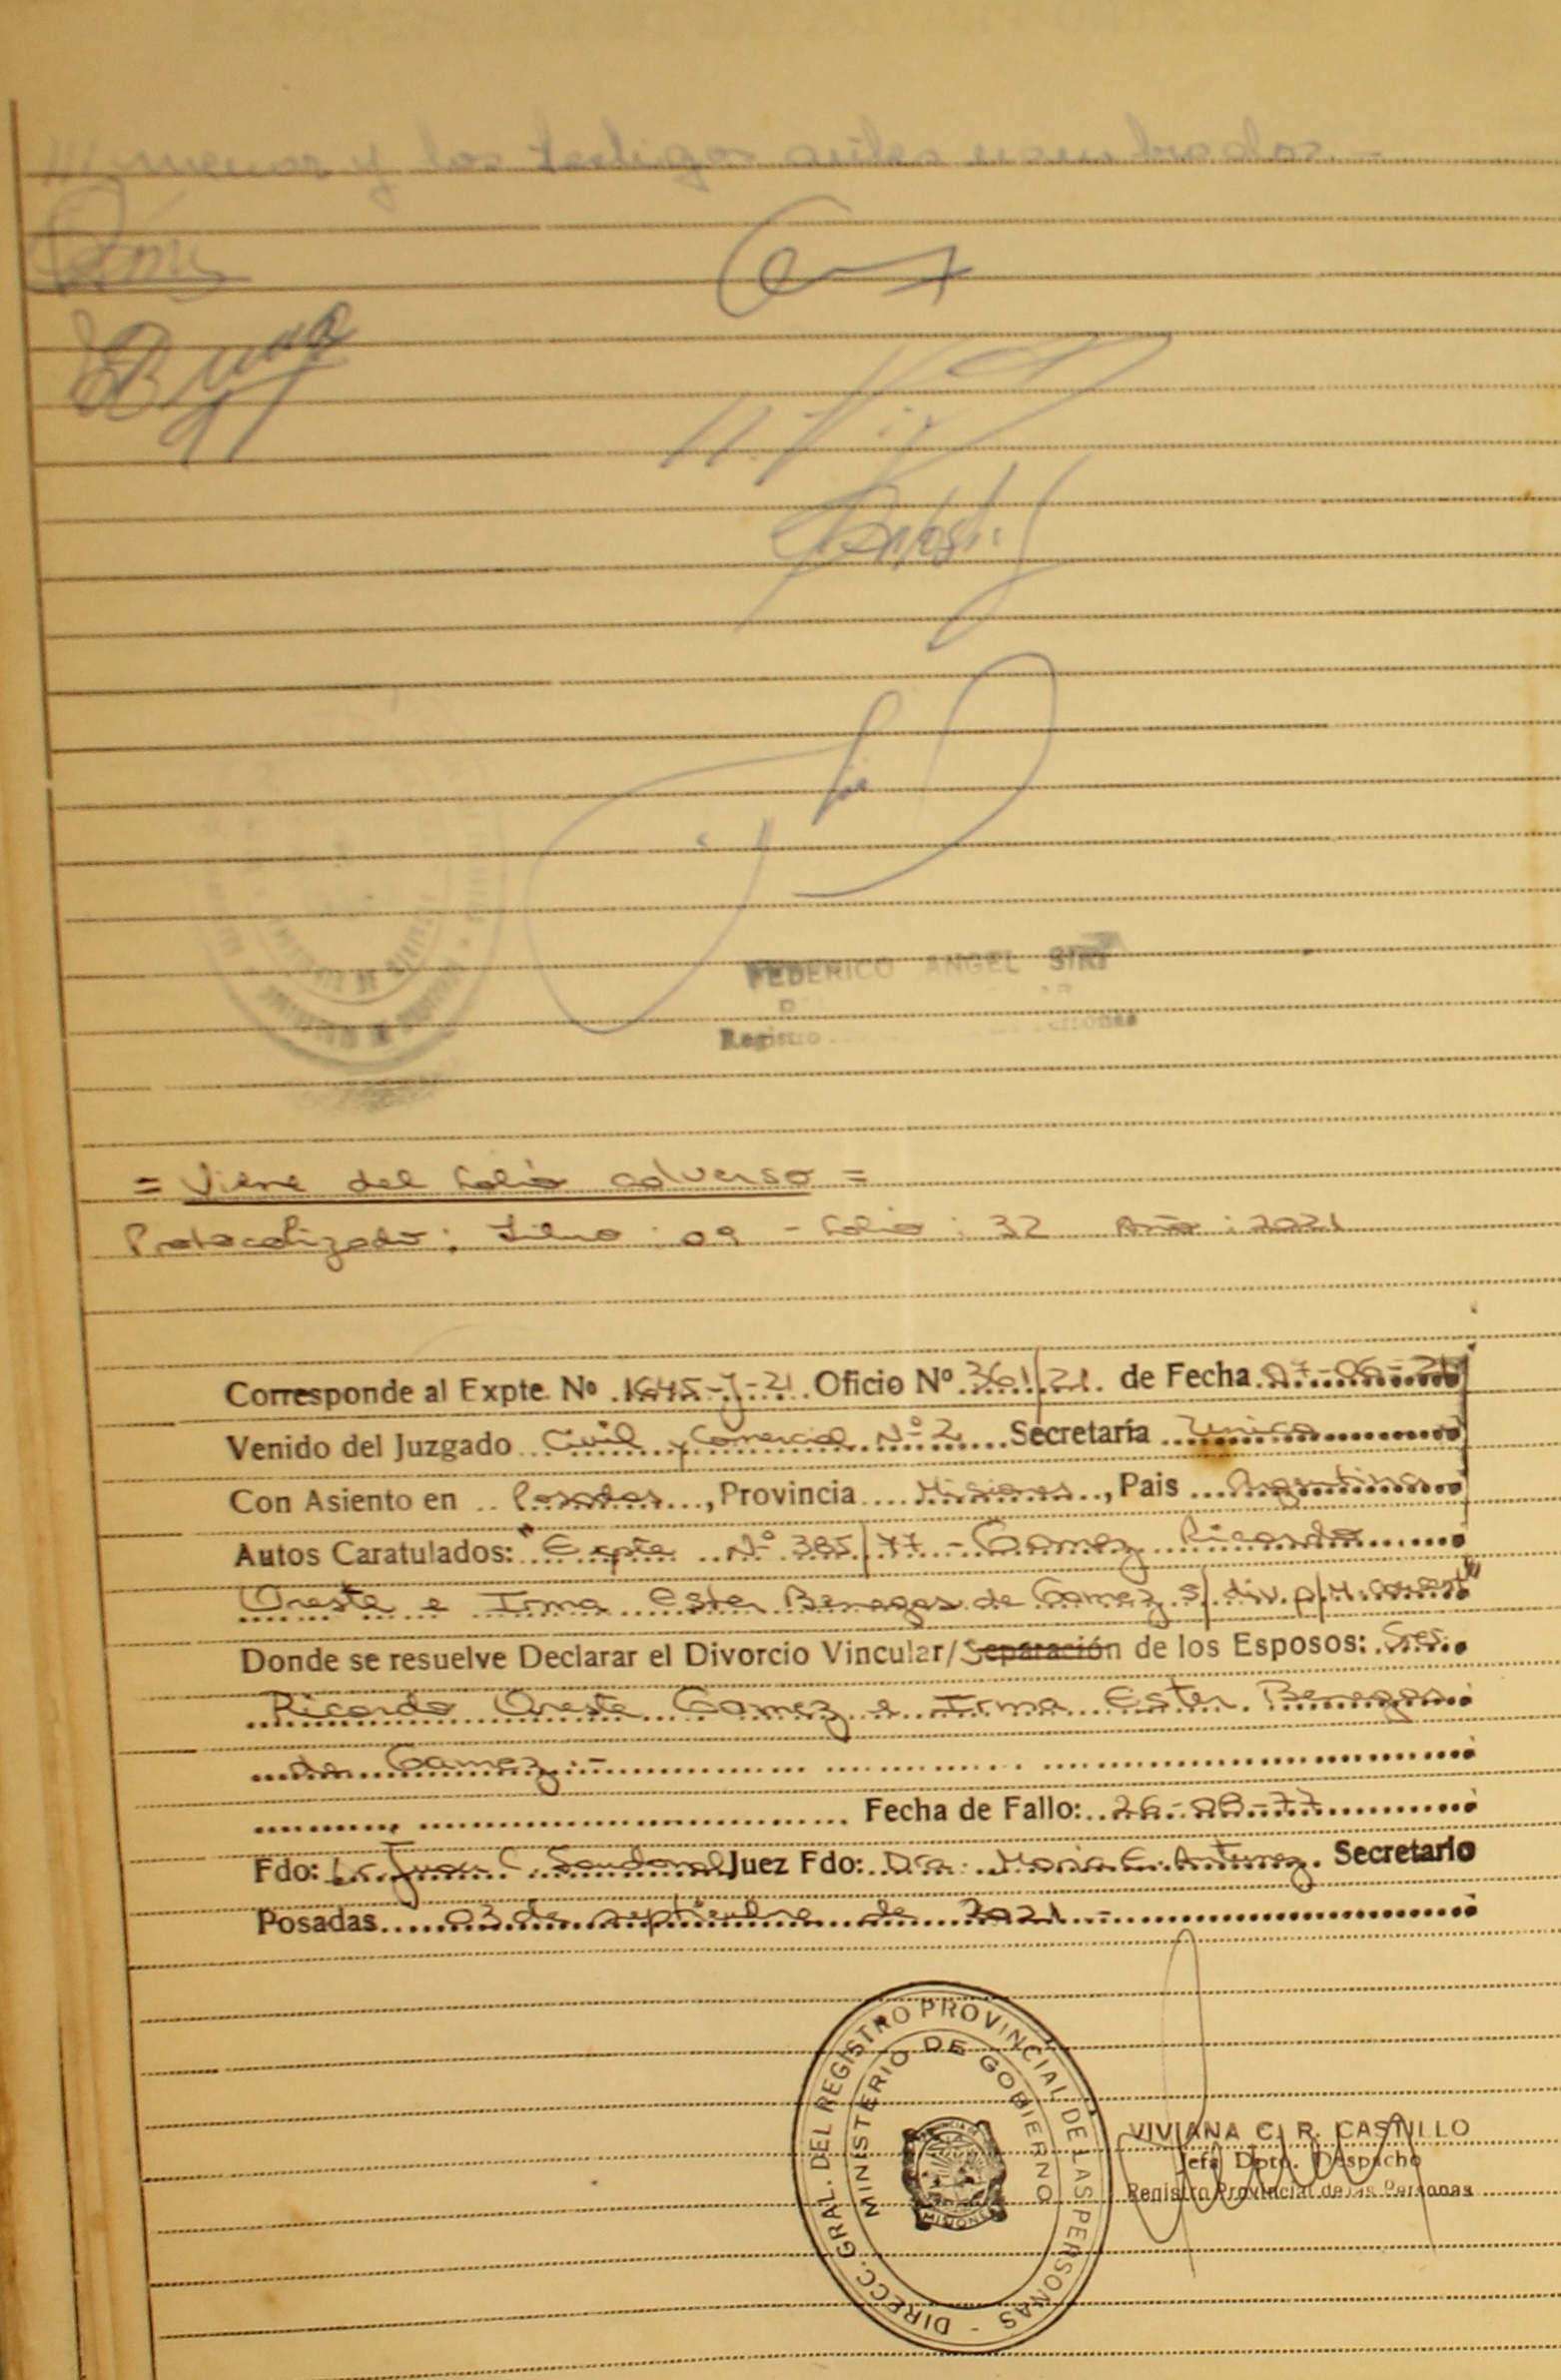 FEDERICO ANGEL SIRI
Registro
= Viene del folio adverso =
Protocolizado: Libro: 09 - Folio: 32 Año: 2021
Corresponde al Expte. Nº 1645-J-21 Oficio Nº 361/21. de Fecha 07-06-21
Venido del Juzgado Civil y Comercial Nº 2 Secretaría Unica
Con Asiento en Posadas, Provincia Misiones, Pais Argentina
Autos Caratulados: "Expte Nº 385/77 - Gomez Ricardo
Oreste e Irma Ester Benegas de Gomez s/ div. p/
Donde se resuelve Declarar el Divorcio Vincular/Separación de los Esposos: Sres.
Ricardo Oreste Gomez e Irma Ester Benegas
de Gomez.-
Fecha de Fallo: 26-08-77
Fdo: Dr Juan C. Sandoval Juez Fdo: Dra. Maria E. Antunez. Secretario
Posadas 03 de septiembre de 2021.-
DIRECC. GRAL. DEL REGISTRO PROVINCIAL DE LAS PERSONAS -
MINISTERIO DE GOBIERNO
MISIONES
VIVIANA C. R. CASTILLO
Jefa Dpto. Despacho
Registro Provincial de las Personas